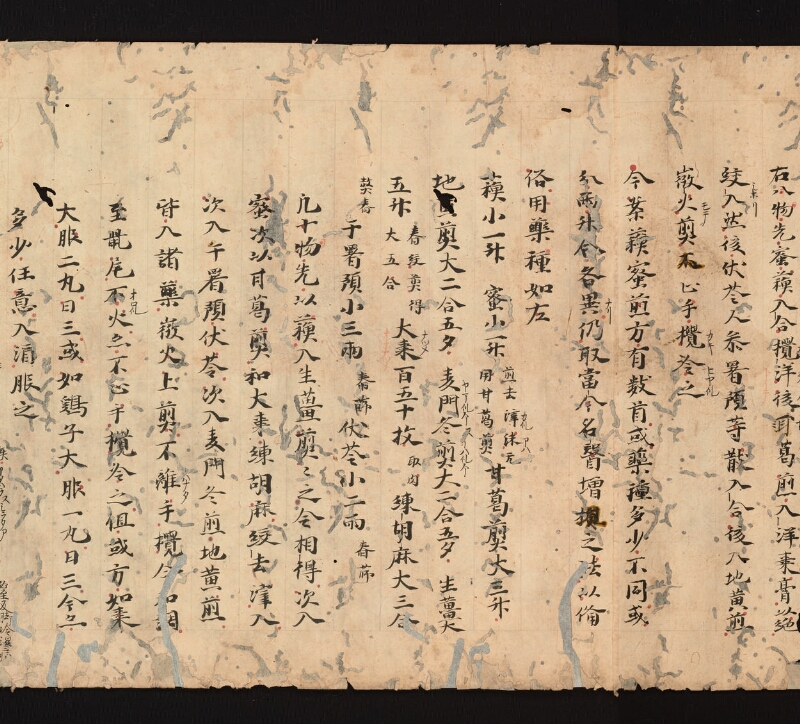 右八物先蜜蘓入合攪洋後甘葛煎入洋棗膏以絶
綾入然後伏苓人参署預等散入合後入地黄煎
微火煎不止手攪令之
今案蘓蜜煎方有数首或藥種多少不同或
斤兩升合各異仍取當今名醫增損之法以備
俗用藥種如左
蘓小一升 蜜小一升 煎去滓沫 用甘葛煎 甘葛煎大三升
地黄煎大二合五夕 麦門冬煎大二合五夕 生薑大
五升 春絞煎得大五合 大棗百五十枚 取肉 練胡麻大三合
干署預小三兩 舂篩 伏苓小二兩 舂篩
凡十物先以蘓入生薑煎々之令相得次入
蜜次以甘葛煎和大棗練胡麻絞去滓入
次入干署預伏苓次入麦門冬煎地黄煎
皆入諸藥微火上煎不離手攪令相調
至 不火急不止手攪令之但或方如棗
大服二丸日三或如鷄子大服一丸日三今
多少任意入酒服之